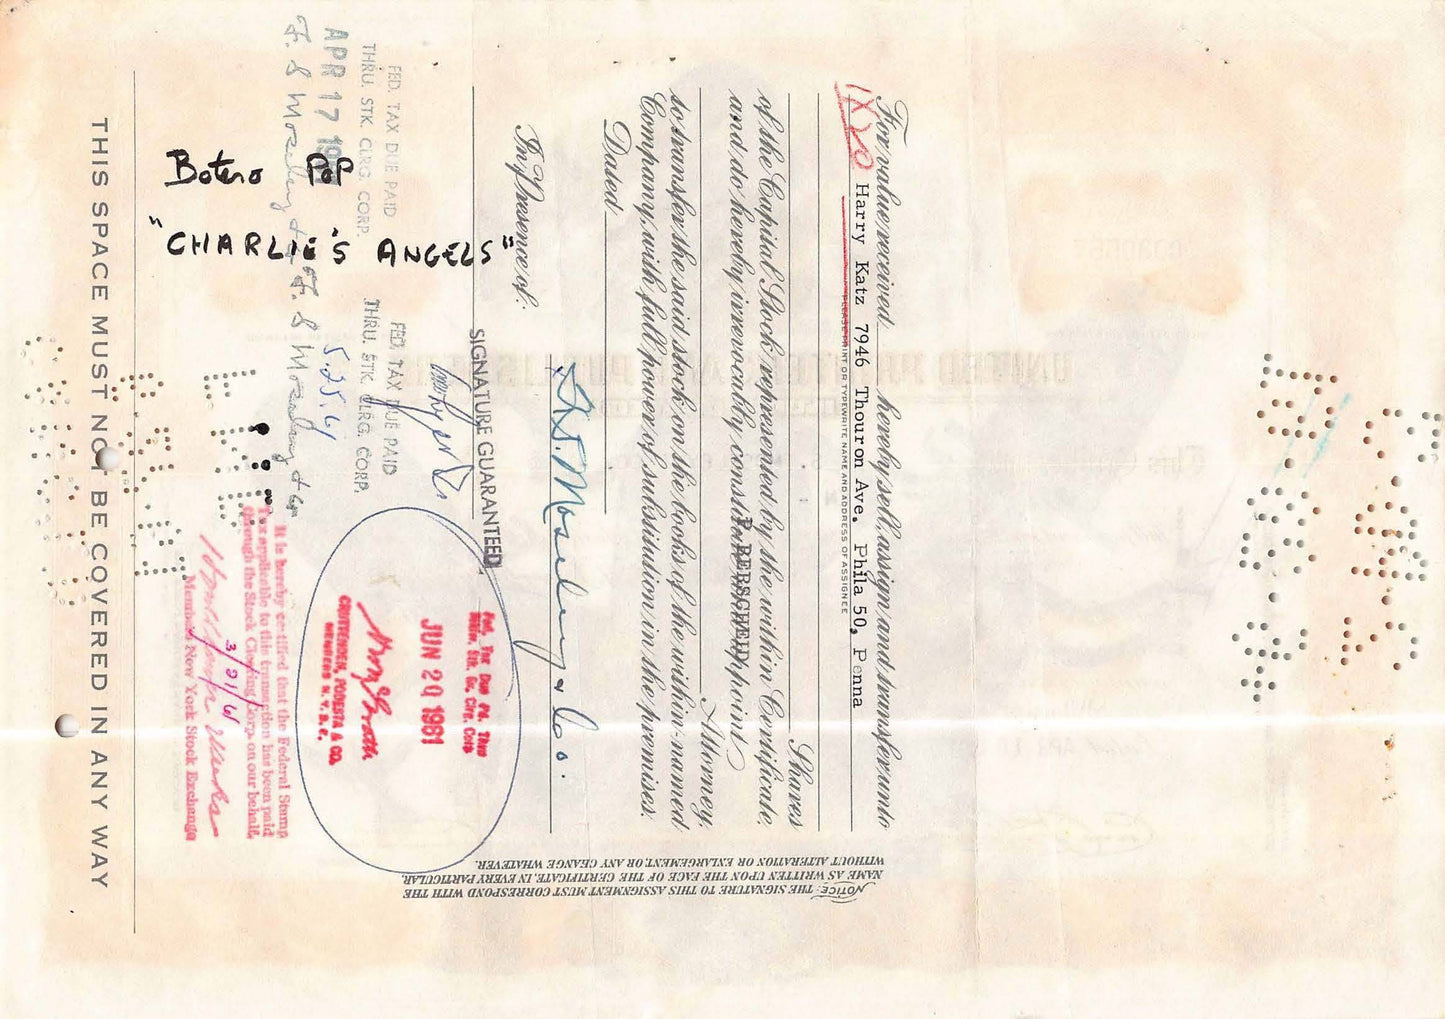 For value received hereby sell, assign and transfer unto
1X20
Harry Katz 7946 Thouron Ave. Phila 50, Penna
PLEASE PRINT OR TYPEWRITE NAME AND ADDRESS OF ASSIGNEE
Shares
of the Capital Stock represented by the within Certificate,
and do hereby irrevocably constitute and appoint
P. BERSCHEID
Attorney,
to transfer the said stock on the books of the within-named
Company, with full power of substitution in the premises.
Dated
In Presence of:
F. S. Moseley & Co.
SIGNATURE GUARANTEED
NOTICE: THE SIGNATURE TO THIS ASSIGNMENT MUST CORRESPOND WITH THE
NAME AS WRITTEN UPON THE FACE OF THE CERTIFICATE, IN EVERY PARTICULAR,
WITHOUT ALTERATION OR ENLARGEMENT, OR ANY CHANGE WHATEVER.
Fed. Tax Due Pd. Thru
Midw. Stk. Ex. Clrg. Corp
JUN 20 1961
CRUTTENDEN, PODESTA & CO.
MEMBERS N.Y.S.E.
FED. TAX DUE PAID
THRU. STK. CLRG. CORP.
APR 17 1961
F. S. Moseley & Co.
FED. TAX DUE PAID
THRU. STK. CLRG. CORP.
5.25.61
F. S. Moseley & Co.
Botero POP
"CHARLIE'S ANGELS"
It is hereby certified that the Federal Stamp
Tax applicable to this transaction has been paid
through the Stock Clearing Corp. on our behalf.
3/21/61
Members New York Stock Exchange
THIS SPACE MUST NOT BE COVERED IN ANY WAY